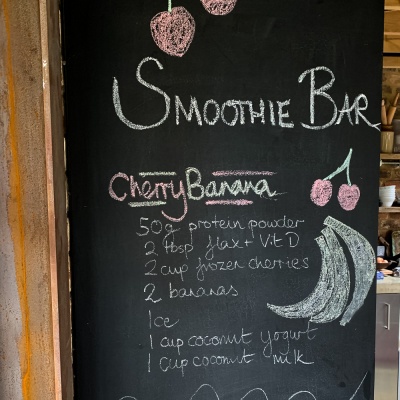 Smoothie Bar
Cherry Banana
50g protein powder
2 tbsp flax + Vit D
2 cup frozen cherries
2 bananas
Ice
1 cup coconut yogurt
1 cup coconut milk